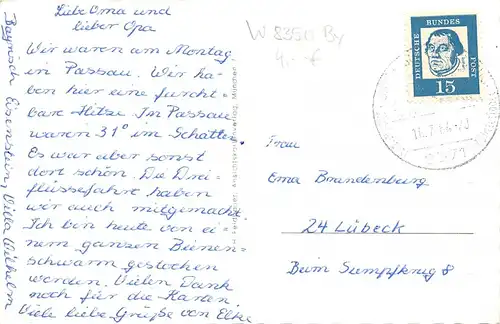 Liebe Oma und
lieber Opa
Wir waren am Montag
in Passau. Wir ha-
ben hier eine furcht
bare Hitze. In Passau
waren 31° im Schatten
Es war aber sonst
dort schön. Die Drei-
flüssefahrt haben
wir auch mitgemacht.
Ich bin heute von ei
nem ganzen Bienen-
schwarm gestochen
worden. Vielen Dank
noch für die Karten.
Viele liebe Grüße von Elke
Bayrisch Eisenstein, Villa Wilhelm
W 8350 By
4,- €
DEUTSCHE BUNDES POST
15
8371
Frau
Erna Brandenburg
24 Lübeck
Beim Sumpfkrug 8